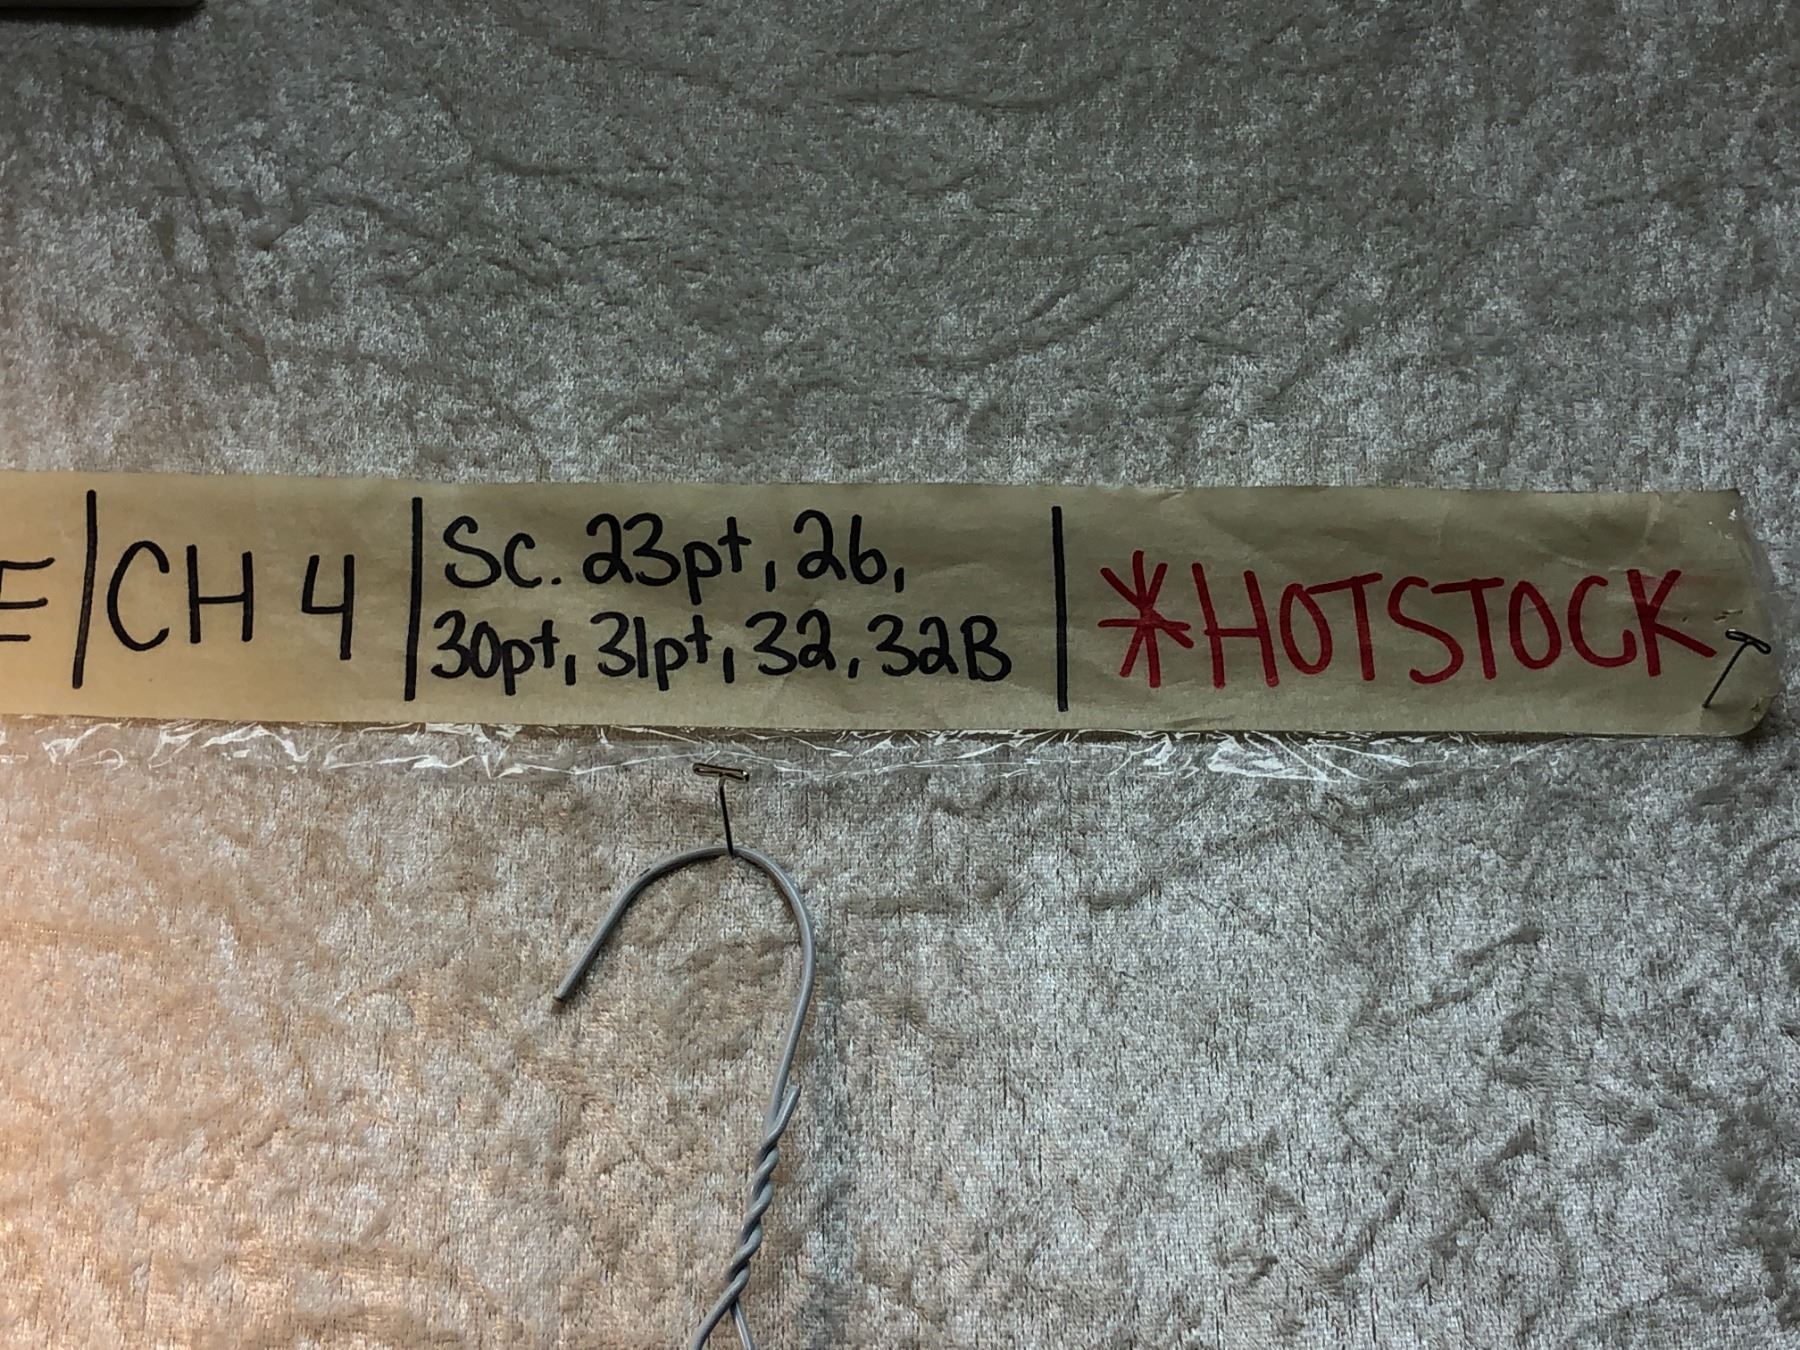 E | CH 4 | Sc. 23pt, 26,
30pt, 31pt, 32, 32B | *HOTSTOCK